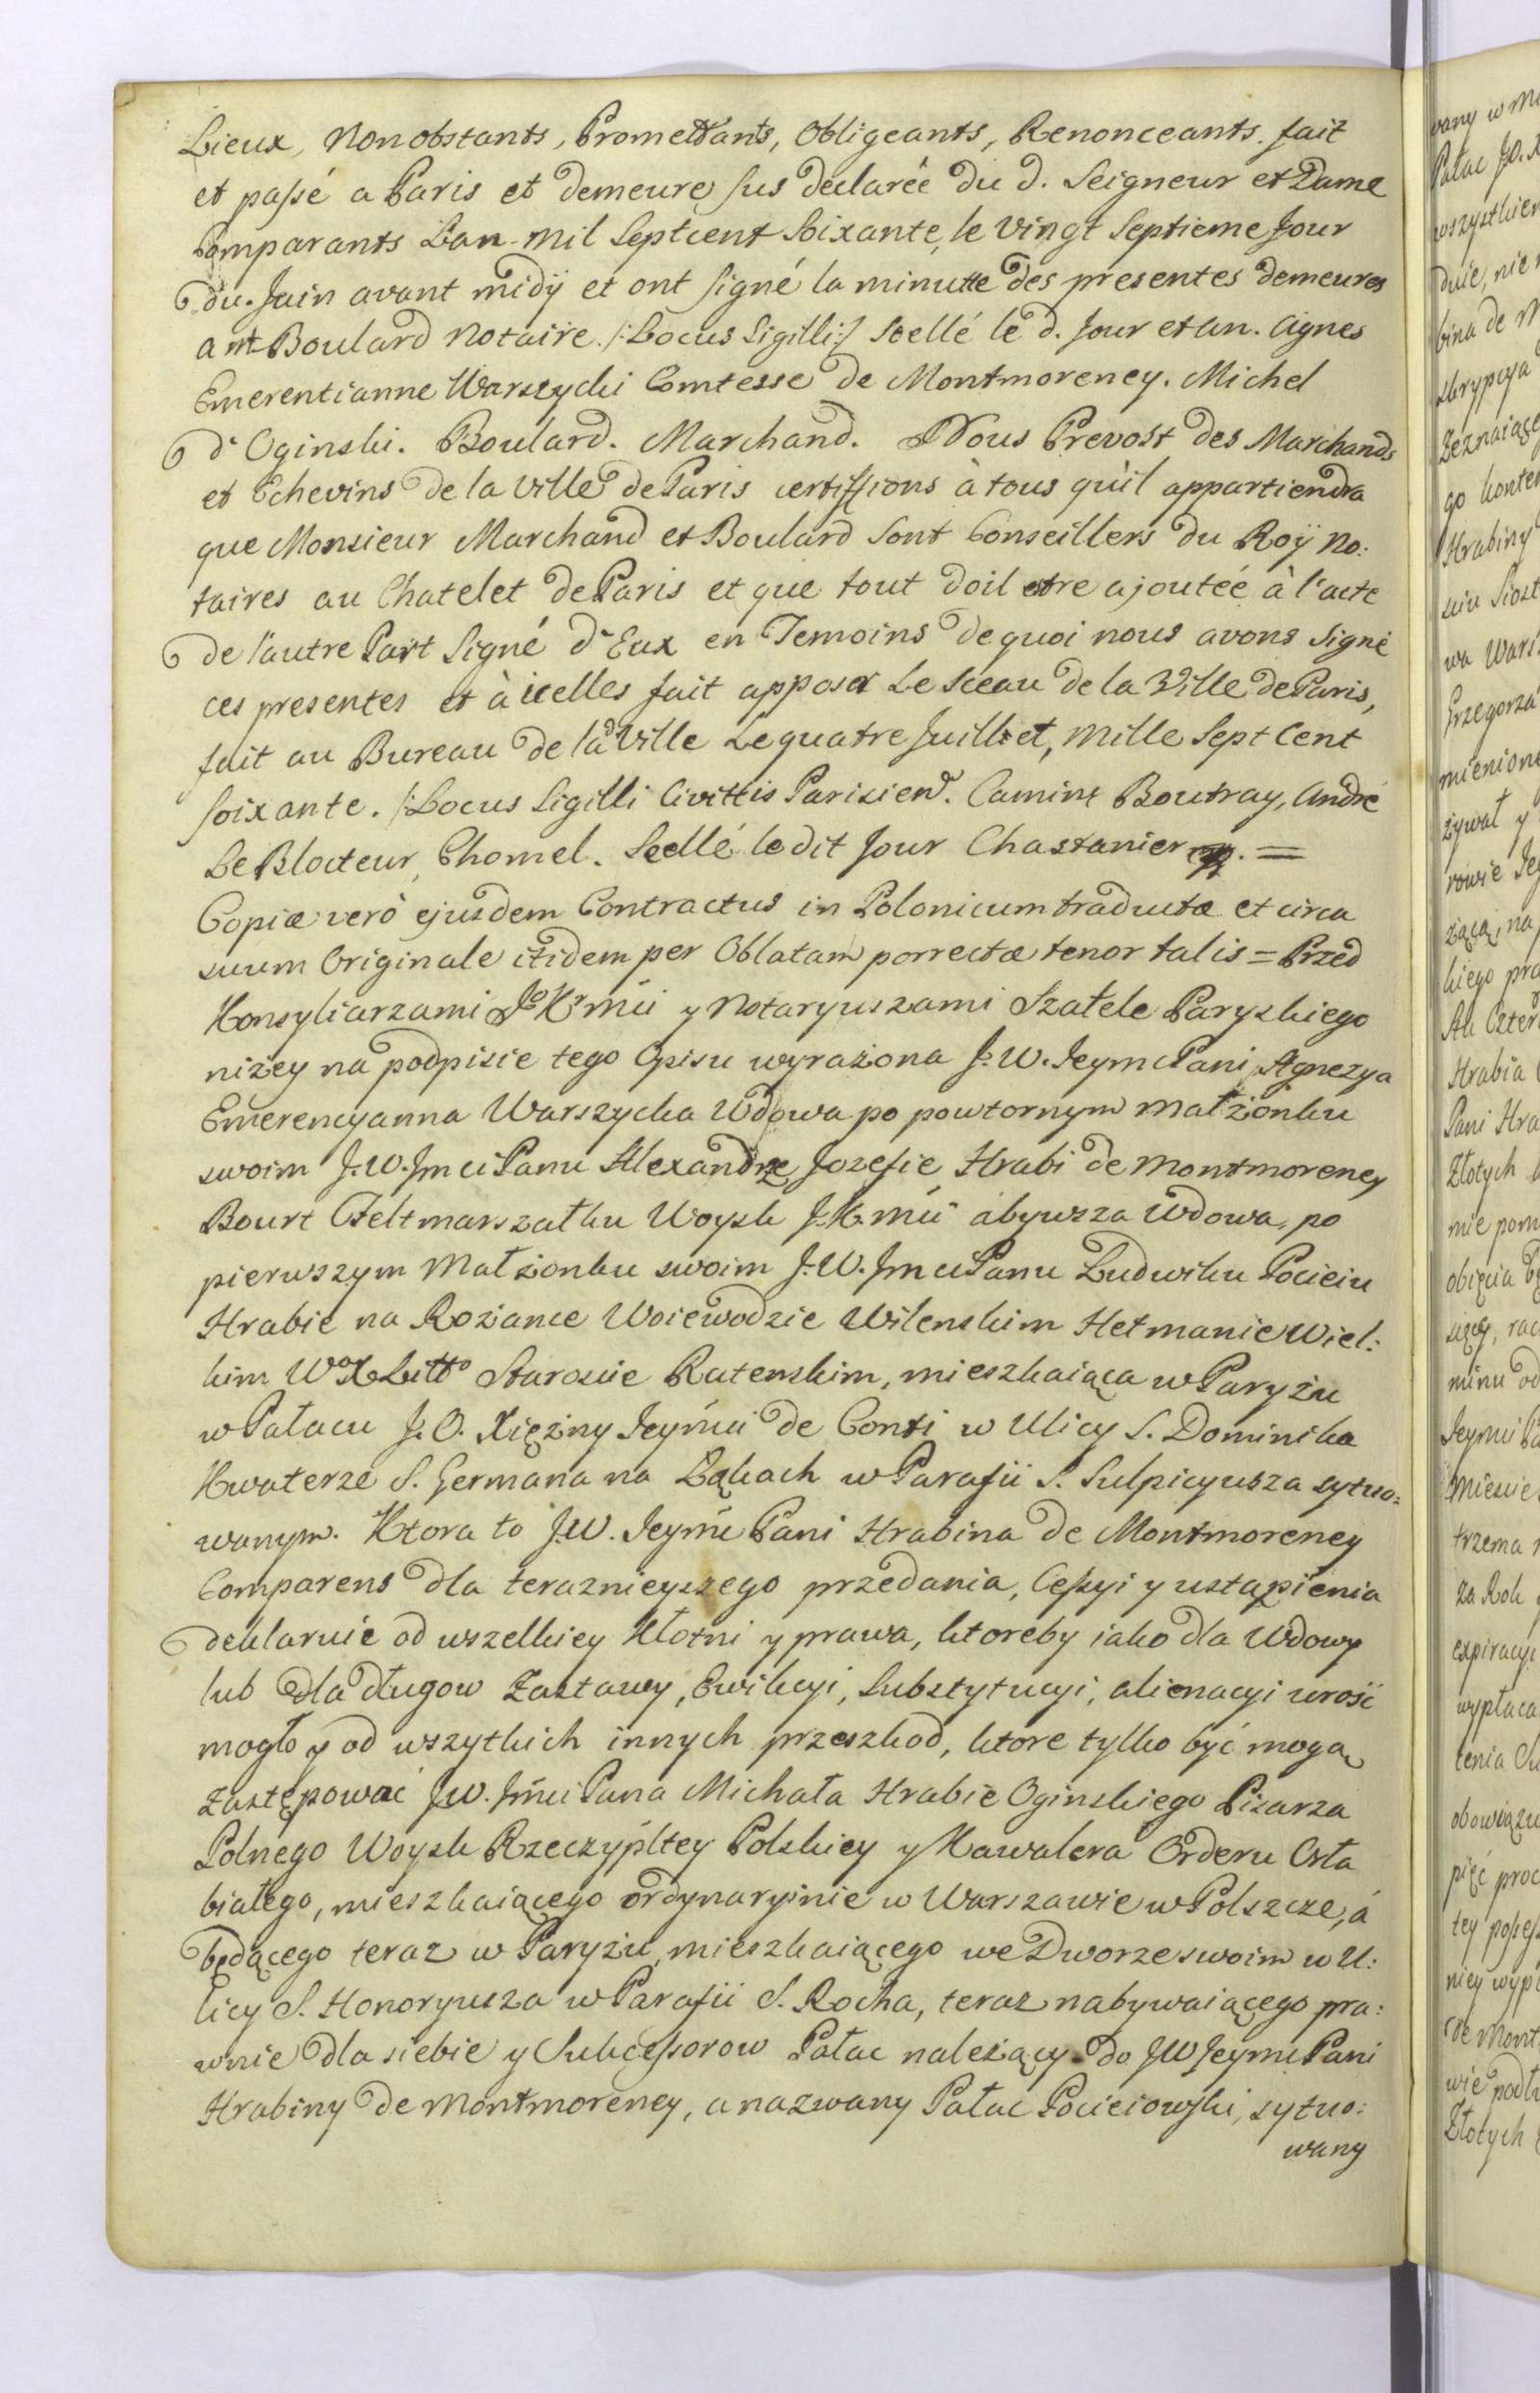 Lieux, Nonobstants, Promettants, Obligeants, Renonceants. fait
et passé a Paris et demeure sus declarée du d. Seigneur et Dame
Comparants L'an mil Septcent Soixante, le Vingt Septieme Jour
du Juin avant midÿ et ont signé la minutte des presentes demeures
a mt Boulard Notaire. /:Locus Sigilli:/ Scellé le d. Jour et an. Agnes
Emerentianne Warszycki Comtesse de Montmorency. Michel
d'Oginski. Boulard. Marchand. Nous Prevost des Marchands
et Echevins de la Ville de Paris certiffions à tous qu'il appartiendra
que Monsieur Marchand et Boulard Sont Conseillers du Roÿ No:
taires au Chatelet de Paris et que tout doit etre ajoutéé à l'acte
de l'autre Part Signé d'Eux en Temoins de quoi nous avons Signé
ces presentes et à icelles fait apposer Le Sceau de la Ville de Paris,
fait au Bureau de la Ville Le quatre Juilliet, Mille Sept Cent
soixante. /:Locus Sigilli Civittis Parisien. Camint Boutray, André
Le Blocteur, Chomel. Scellé le dit Jour Chastanier =
Copiæ verò ejusdem Contractus in Polonicum traductæ et circa
suum Originale itidem per Oblatam porrectæ tenor talis = Przed
Konsyliarzami Jo Kr mći y Notaryuszami Szatele Paryskiego
niżey na podpisie tego Opisu wyrażona J. W. Jeymc Pani Agnezya
Emerencyanna Warszycka Wdowa po powtornym małżonku
swoim J. W. Jmci Panu Alexandrze Jozefie Hrabi de Montmorency
Bourt Feltmarszałku Woysk J. K. mći a bywsza Wdowa, po
pierwszym Małżonku swoim J. W. Jmci Panu Ludwiku Pocieiu
Hrabie na Rożance Woiewodzie Wilenskim Hetmanie Wiel:
kim W X Litto Staroscie Ratenskim, mieszkaiąca w Paryżu
w Pałacu J. O. Xiężny Jeymći de Conti w Ulicy S. Dominika
Kwaterze S. Germana na Łąkach w Parafii S. Sulpicyusza sytuo=
wanym. Ktora to J. W. Jeymć Pani Hrabina de Montmorency
Comparens dla teraznieyszego przedania, Cessyi y ustąpienia
deklaruie od wszelkiey Kłotni y prawa, ktoreby iako dla Wdowy
lub dla długow Zastawy, Ewikcyi, Substytucyi, alienacyi urość
mogło y od wszytkich innych przeszkod, ktore tylko być mogą
zastępować J W. Jmći Pana Michała Hrabie Oginskiego Pisarza
Polnego Woysk Rzeczypltey Polskiey y Kawalera Orderu Orła
białego, mieszkaiącego ordynaryinie w Warszawie w Polszcze, á
będącego teraz w Paryżu, mieszkaiącego we Dworze swoim w U:
licy S. Honoryusza w Parafii S. Rocha, teraz nabywaiącego pra:
wnie dla siebie y Sukcessorow Pałac należący do J W Jeymc Pani
Hrabiny de Montmorency, a nazwany Pałac Pocieiowski, sytuo:
wany